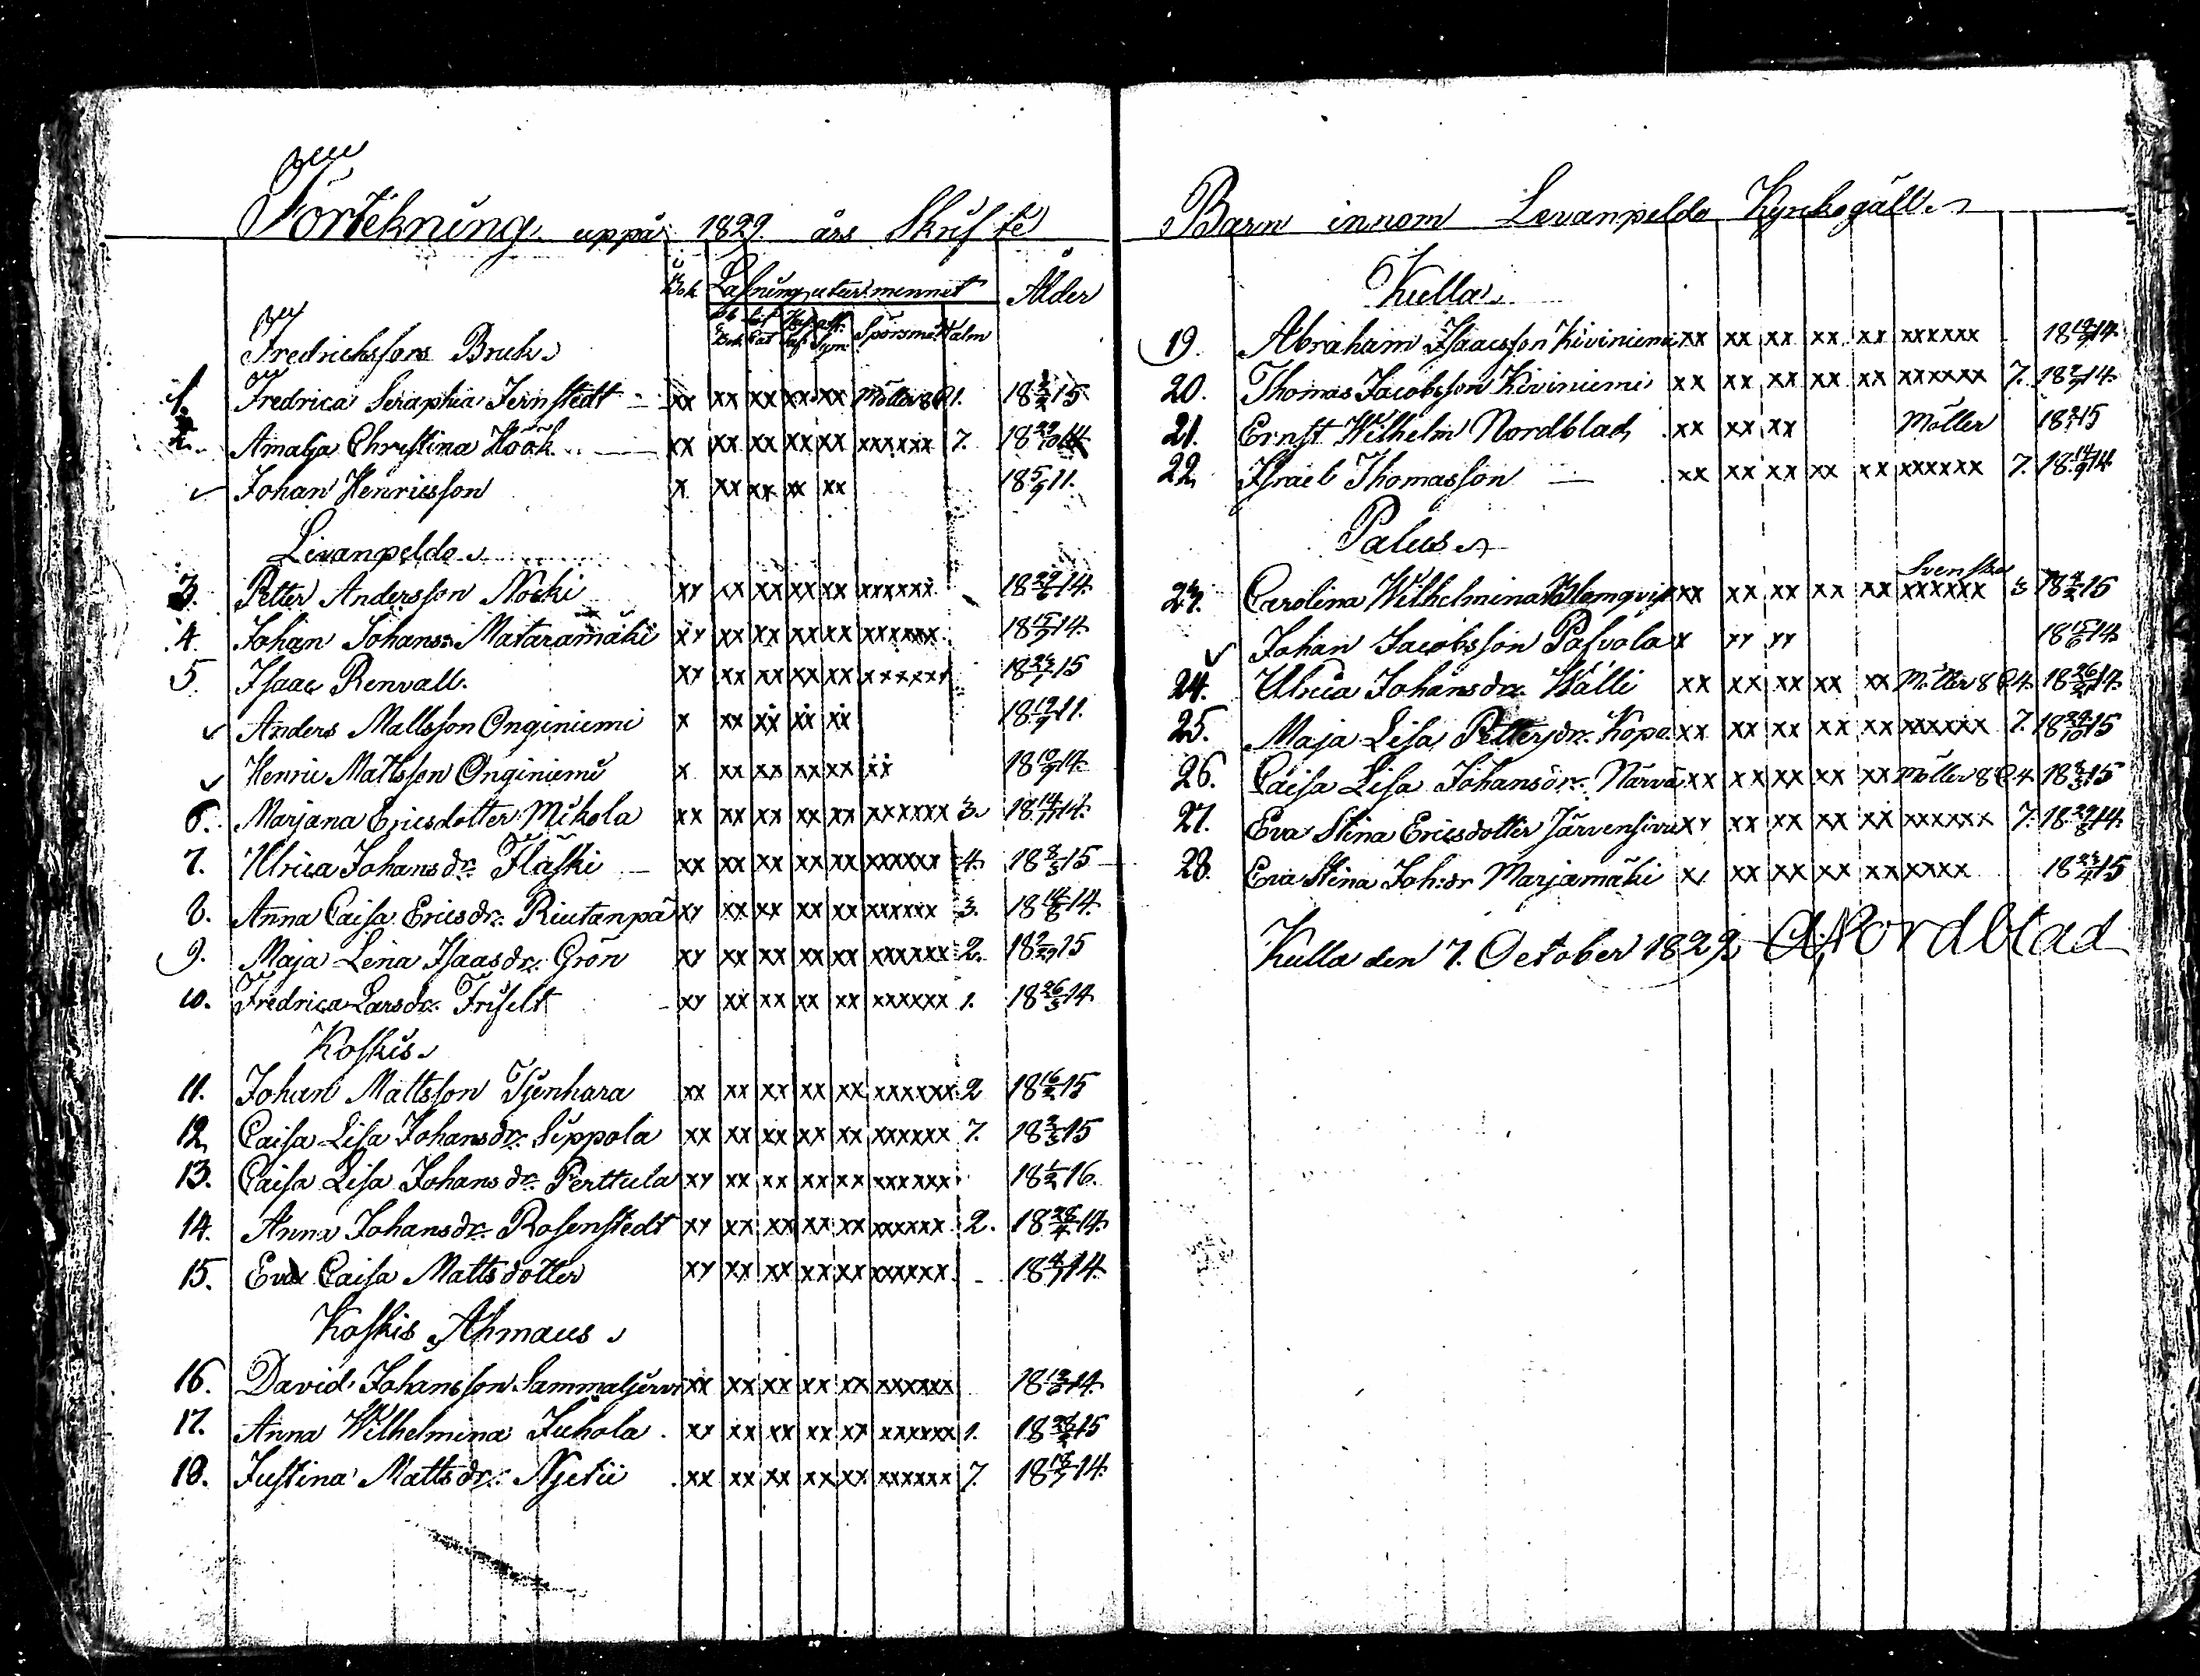 Förtekning uppå 1829 års Skrifte
Bok Läsning utur minnet Ålder
Spörsmål Psalm
Fredricksfors Bruk
1. Fredrica Seraphia Jernstedt xx xx xx xx xx Möller 8 1. 18 15
2. Amalja Christina Höök xx xx xx xx xx xxxxxx 7. 18 14
Johan Henricsson x xx xx xx xx 18 5/9 11.
Levanpeldo
3. Petter Andersson Nocki xx xx xx xx xx xxxxxx 18 14.
4. Johan Johanss: Mataramäki xx xx xx xx xx xxxxxx 18 14.
5. Isaac Renvall. xx xx xx xx xx xxxxxx 18 15
Anders Mattsson Onginiemi x xx xx xx xx 18 11.
Henric Mattsson Onginiemi x xx xx xx xx xx 18 14.
6. Marjana Ericsdotter Mikola xx xx xx xx xx xxxxxx 3. 18 14.
7. Ulrica Johansdr. Fläski xx xx xx xx xx xxxxxx 4. 18 8/3 15
8. Anna Caisa Ericsdr. Riutanpä xx xx xx xx xx xxxxxx 3. 18 14.
9. Maja Lena Isaacsdr. Grön xx xx xx xx xx xxxxxx 2. 18 15
10. Fredrica Larsdr. Friselt xx xx xx xx xx xxxxxx 1. 18 26/3 14
Koskis
11. Johan Mattsson Tjenhara xx xx xx xx xx xxxxxx 2 18 16/2 15
12. Caisa Lisa Johansdr. Sippola xx xx xx xx xx xxxxxx 7. 18 15
13. Caisa Lisa Johansdr. Perttula xx xx xx xx xx xxxxxx 18 16.
14. Anna Johansdr. Rosenstedt xx xx xx xx xx xxxxxx 2. 18 28/4 14.
15. Eva Caisa Mattsdotter xx xx xx xx xx xxxxxx 18 14.
Koskis Ahmaus
16. David Johansson Sammaljervi xx xx xx xx xx xxxxxx 18 14.
17. Anna Wilhelmina Juhola xx xx xx xx xx xxxxxx 1. 18 15
18. Justina Mattsdr. xx xx xx xx xx xxxxxx 7. 18 14.
Barn innom Levanpeldo Kyrkogäll
Kulla
19. Abraham Isaacsson Kiviniemi xx xx xx xx xx xxxxxx 18 14.
20. Thomas Jacobsson Kiviniemi xx xx xx xx xx xxxxxx 7. 18 14.
21. Ernst Wilhelm Nordblad xx xx xx Möller 18 15
22. Israel Thomasson xx xx xx xx xx xxxxxx 7. 18 14
Palus
Svenska
23. Carolina Wilhelmina Blomqvist xx xx xx xx xx xxxxxx 3 18 15
Johan Jacobsson Pasvola x xx xx 18 14
24. Ulrica Johansdr. Wälli xx xx xx xx xx Möller 8 4. 18 14.
25. Maja Lisa Pettersdr. Kopa xx xx xx xx xx xxxxxx 7. 18 15
26. Caisa Lisa Johansdr. Närvä xx xx xx xx xx Möller 8 4 18 15
27. Eva Stina Ericsdotter Järvensivu xx xx xx xx xx xxxxxx 7. 18 14.
28. Eva Stina Joh:dr Marjamäki xx xx xx xx xx xxxx 18 15
Kulla den 7. October 1829 Nordblad